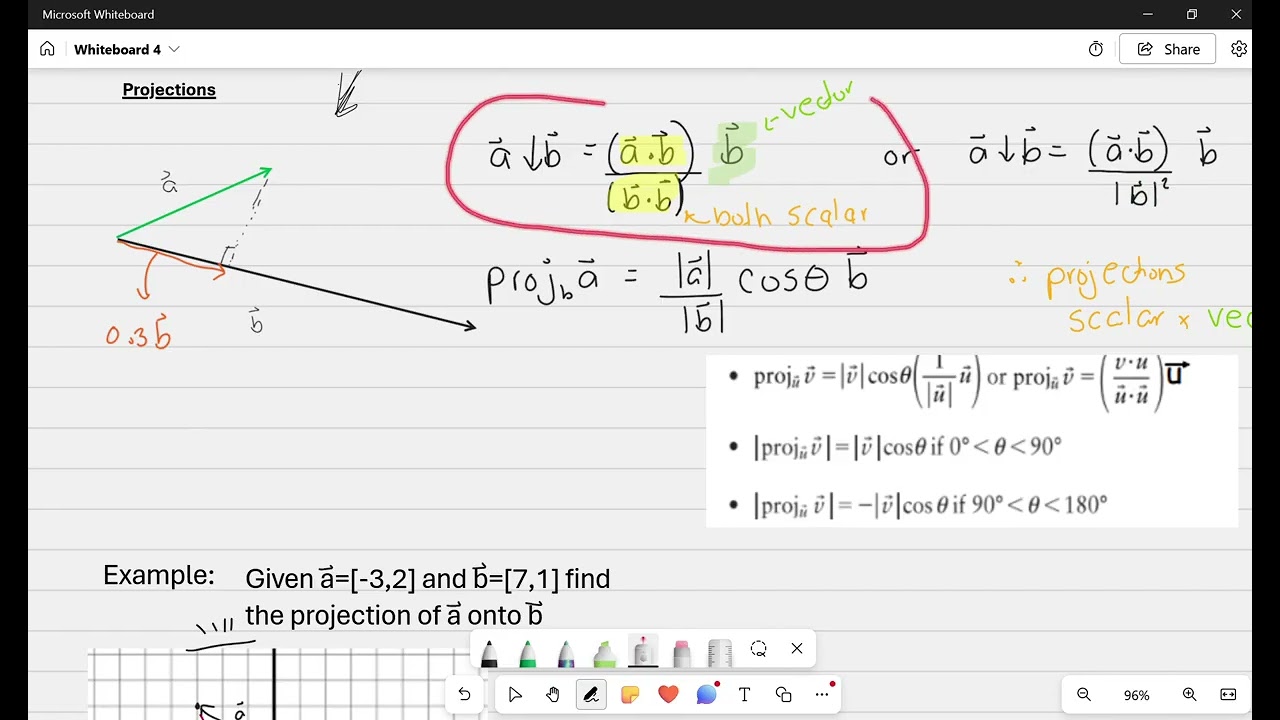 Microsoft Whiteboard
Whiteboard 4
Share
Projections
←vector
a⃗ ↓ b⃗ = (a⃗ · b⃗) / (b⃗ · b⃗) b⃗ or a⃗ ↓ b⃗ = (a⃗ · b⃗) / |b⃗|² b⃗
←both scalar
a⃗
proj_b a⃗ = |a⃗| / |b⃗| cosθ b⃗
∴ projections
scalar × vec
0.3b⃗
b⃗
• proj_u⃗ v⃗ = |v⃗|cosθ(1/|u⃗| u⃗) or proj_u⃗ v⃗ = (v·u / u⃗·u⃗) u⃗
• |proj_u⃗ v⃗| = |v⃗|cosθ if 0° < θ < 90°
• |proj_u⃗ v⃗| = −|v⃗|cosθ if 90° < θ < 180°
Example: Given a⃗=[-3,2] and b⃗=[7,1] find
the projection of a⃗ onto b⃗
a⃗
T
96%